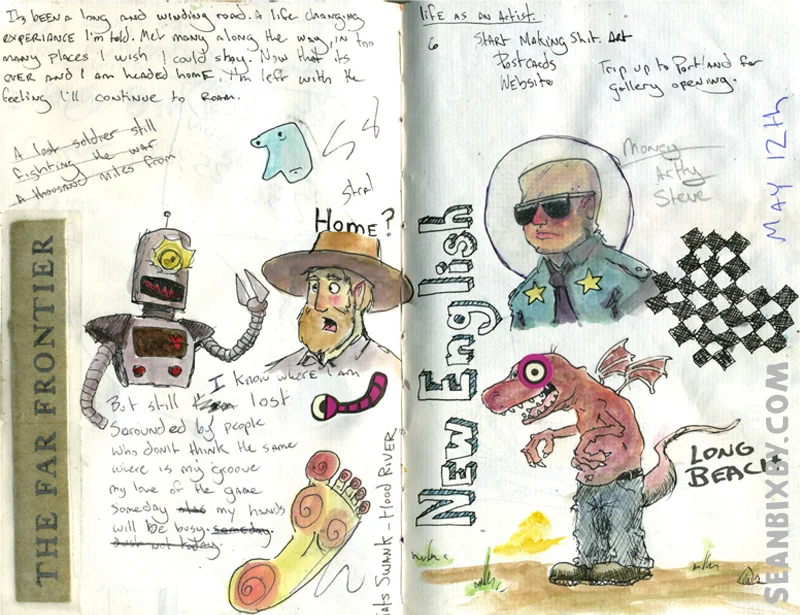 Its been a long and winding road. A life changing
experiance I'm told. Met many along the way, in too
many places I wish I could stay. Now that its
over and I am headed home. I'm left with the
feeling I'll continue to roam.
A lost soldier still
fighting the war
a thousand miles from
Home?
THE FAR FRONTIER
I know where I am
But still lost
Sarounded by people
who don't think the same
where is my groove
my love of the game
someday my hands
will be busy. someday.
Swank - Hood River
life as an artist.
6 Start Making Shit. Art
Postcards
Website
Trip up to Portland for
gallery opening.
May 12th
Money
Arthy
Steve
New English
Long
Beach
SEANBIXBY.COM